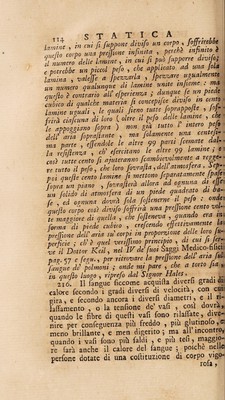 114 STATICA
lamine, in cui si suppone diviso un corpo, soffrirebbe
questo corpo una pressione infinita, perchè infinito è
il numero delle lamine, in cui si può supporre diviso;
e potrebbe un piccol peso, che applicato ad una sola
lamina, valesse a spezzarla, spezzare ugualmente
un numero qualunque di lamine unite insieme: ma
questo è contrario all'esperienza; dunque se un piede
cubico di qualche materia si concepisce diviso in cento
lamine uguali, le quali sieno tutte soprapposte, soffrirà
ciascuna di loro (oltre il peso delle lamine, che
le appoggiano sopra) non già tutto l'intero peso
dell'aria sopraffante, ma solamente una centesima
parte, essendole le altre 99 parti levate dalla
resistenza, ch'esercitano le altre 99 lamine, e
così tutte cento si ajuteranno scambievolmente a reggere
tutto il peso, che loro sovrasta, dell'atmosfera.
poi queste cento lamine si mettono separatamente spase
sopra un piano, sovrasterà allora ad ognuna di esse
un solido di atmosfera di un piede quadrato di base,
ed ognuna dovrà sola sostenerne il peso: onde
questo corpo così diviso soffrirà una pressione cento volte
maggiore di quella, che sosteneva, quando era in
forma di piede cubico, crescendo effettivamente la
pressione dell'aria su' corpi in proporzione delle loro superficie;
ch'è quel verissimo principio, di cui si serve
il Dottor Keil, nel IV. de' suoi Saggi Medico-fisici
pag. 57 e segu. per ritrovare la pressione dell'aria sul
sangue de' polmoni; onde mi pare, che a torto sia
in questo luogo, ripreso dal Signor Hales.
210. Il sangue siccome acquista diversi gradi di
calore secondo i gradi diversi di velocità, con cui
gira, e secondo ancora i diversi diametri, e il rilassamento,
o la tensione de' vasi, così dovrà,
quando le fibre di questi vasi sono rilassate, divenire
per conseguenza più freddo, più glutinoso, e
meno brillante, e men digerito; ma all'incontro,
quando i vasi sono più saldi, e più tesi, maggiore
sarà anche il calore del sangue; poichè nelle
persone dotate di una costituzione di corpo vigorosa,